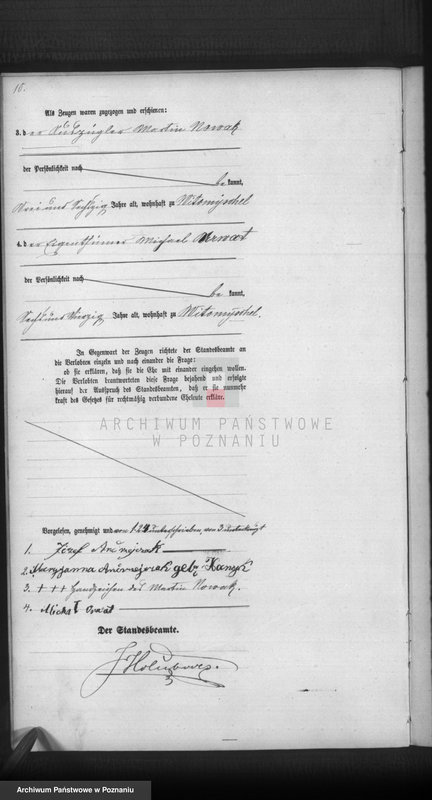 10.
Als Zeugen waren zugezogen und erschienen:
3. der Auszügler Martin Nowak
der Persönlichkeit nach
be kannt,
drei und sechszig Jahre alt, wohnhaft zu Witomyschel
4. der Eigenthümer Michael
der Persönlichkeit nach
be kannt,
sechs und vierzig Jahre alt, wohnhaft zu Witomyschel.
In Gegenwart der Zeugen richtete der Standesbeamte an
die Verlobten einzeln und nach einander die Frage:
ob sie erklären, daß sie die Ehe mit einander eingehen wollen.
Die Verlobten beantworteten diese Frage bejahend und erfolgte
hierauf der Ausspruch des Standesbeamten, daß er sie nunmehr
kraft des Gesetzes für rechtmäßig verbundene Eheleute erkläre.
ARCHIWUM PAŃSTWOWE
W POZNANIU
Vorgelesen, genehmigt und von 1 2 4 unterschrieben, von 3 unterkreuzt
1. Józef
2. Maryanna geb.
3. +++ Handzeichen des Martin Nowak.
4.
Der Standesbeamte.
Archiwum Państwowe w Poznaniu